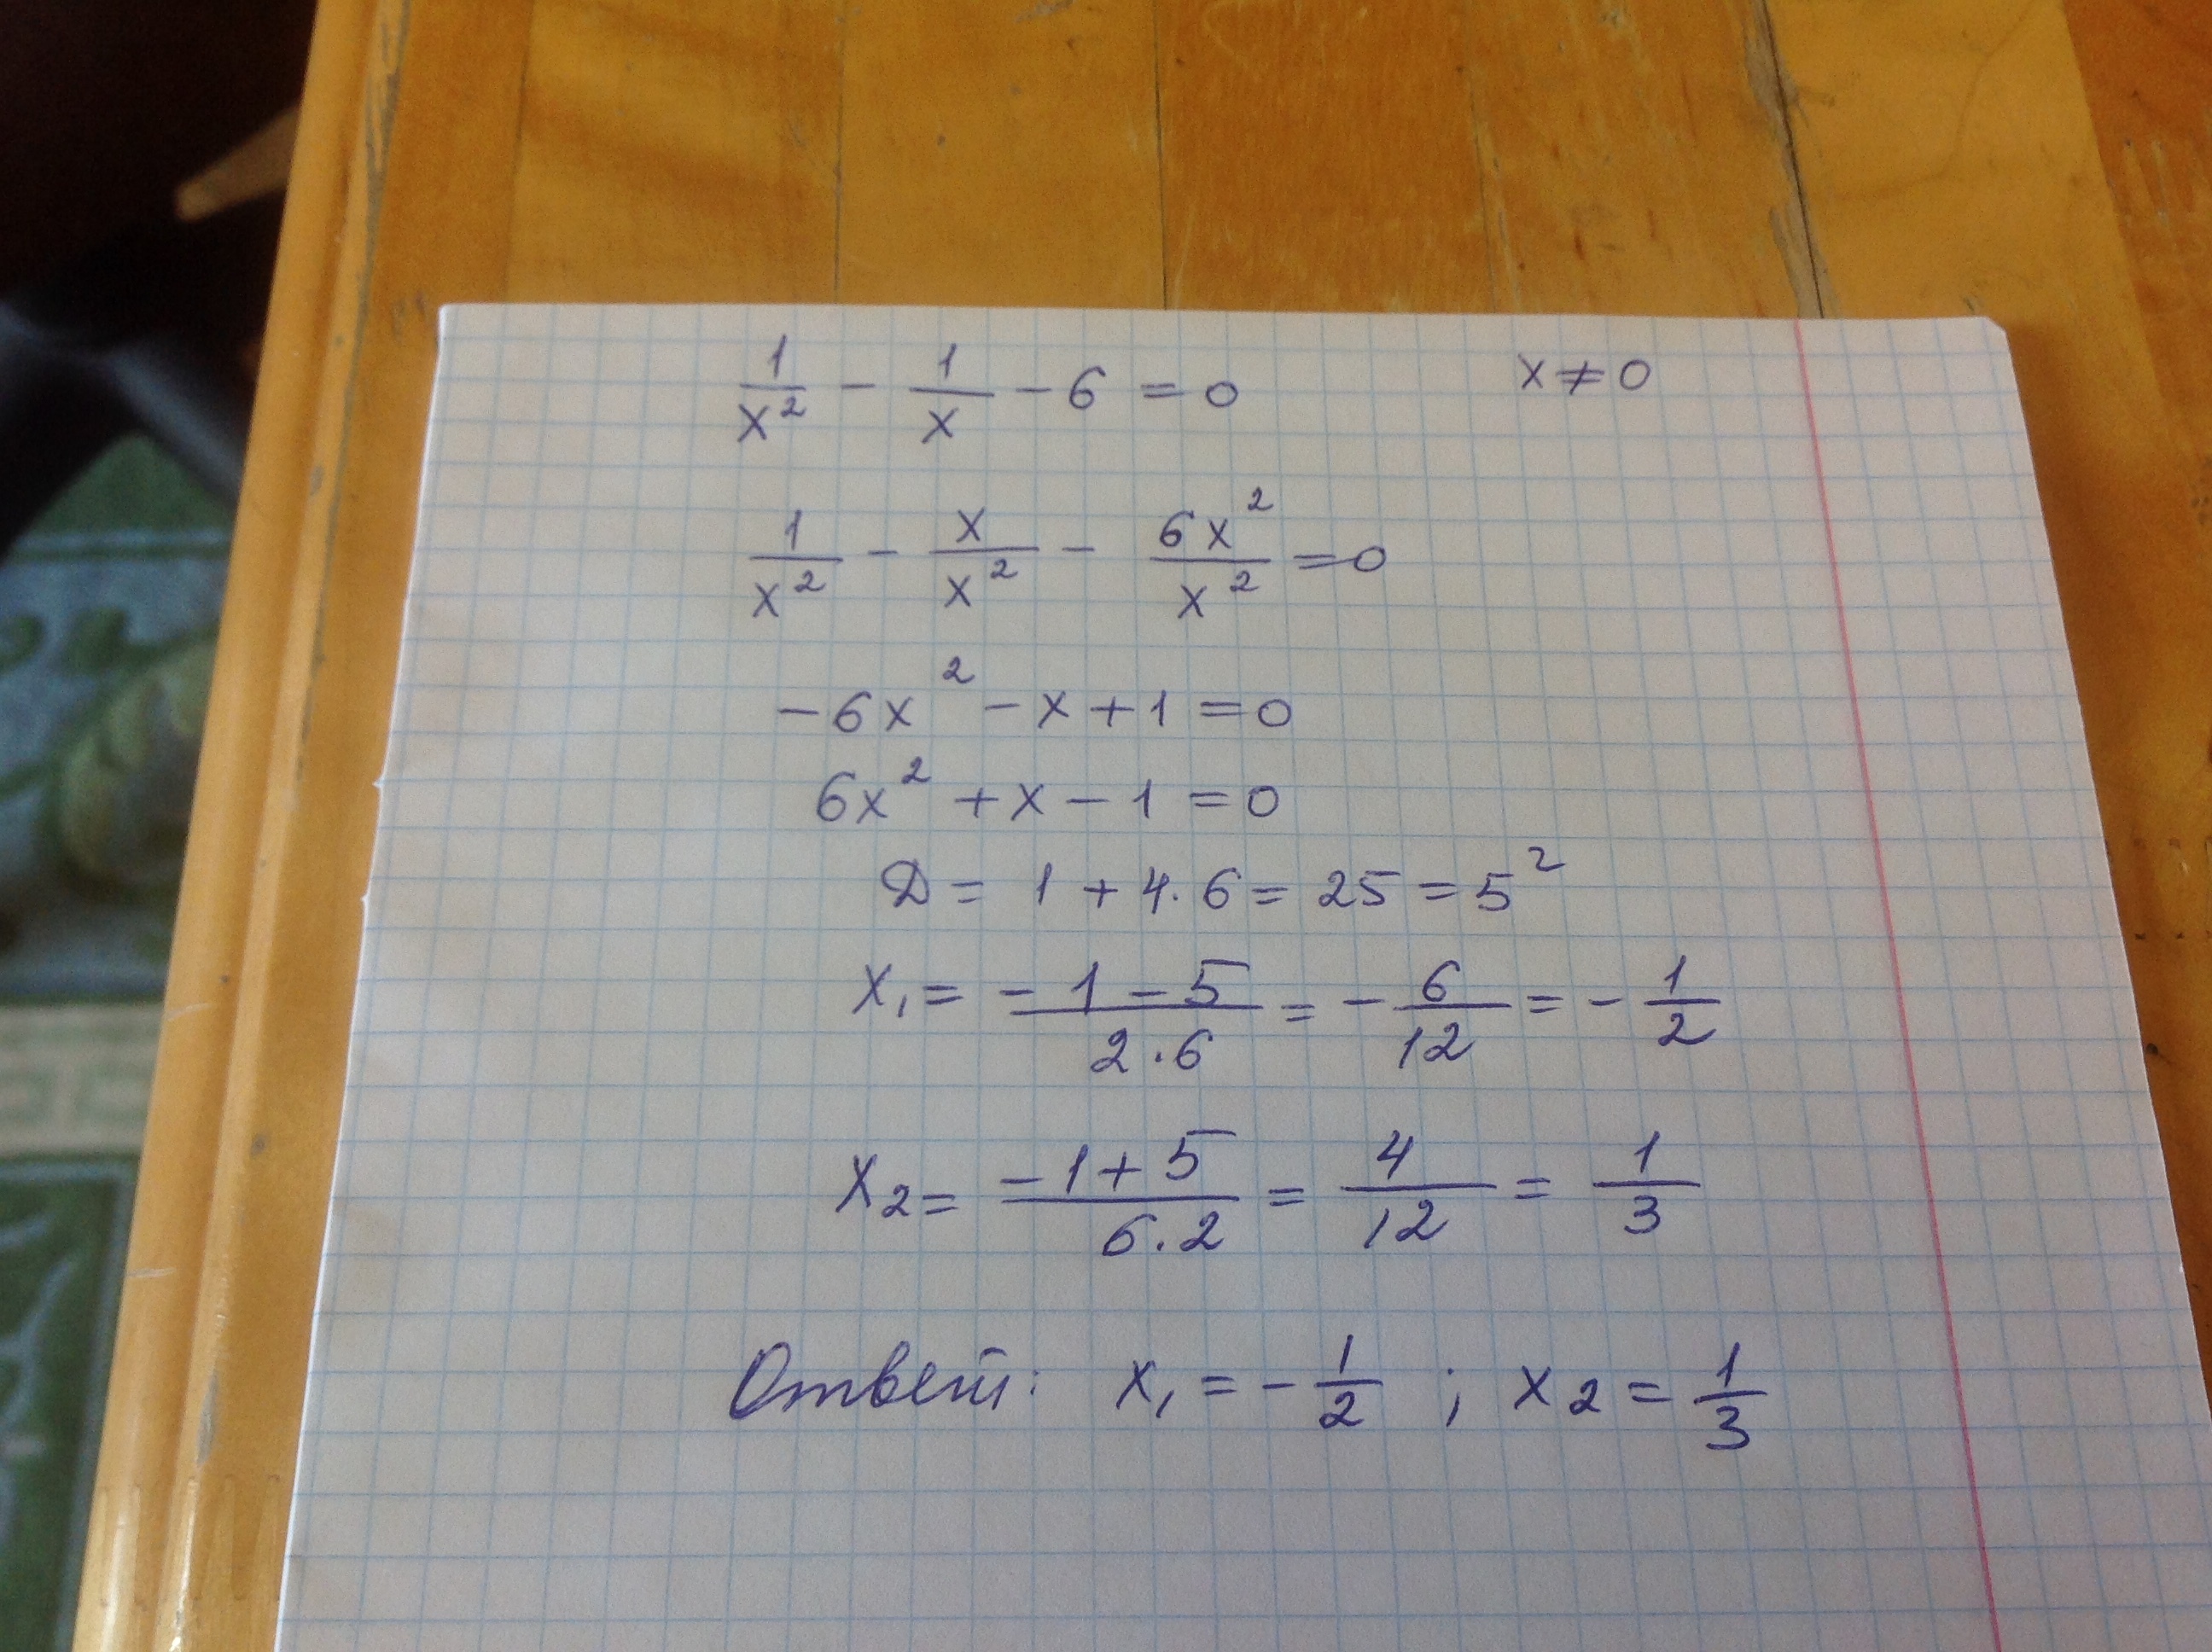 1/x² - 1/x - 6 = 0 x ≠ 0
1/x² - x/x² - 6x²/x² = 0
-6x² - x + 1 = 0
6x² + x - 1 = 0
Д = 1 + 4·6 = 25 = 5²
x₁ = (-1-5)/(2·6) = -6/12 = -1/2
x₂ = (-1+5)/(6·2) = 4/12 = 1/3
Ответ: x₁ = -1/2 ; x₂ = 1/3